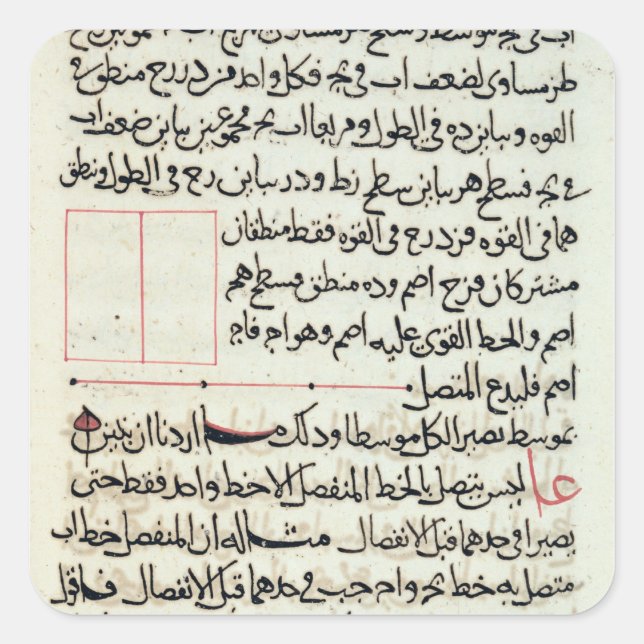 اب في بج متوسط وسطح
طز مساوى لضعف اب في بج فكل واحد من د زح منطق في
القوه ومباين ده في الطول ومربعا اب بج مجموعين مباين ضعف اب
في بج فسطح هز مباين سطح زط ودز مباين زح في الطول ومنطق
هما في القوه فزد زح في القوه فقط منطقان
مشتركان فزح اصم وده منطق فسطح هح
اصم والخط القوى عليه اصم وهو اج فاج
اصم فليدع المتصل
بموسط يصير الكل موسطا وذلك ما اردنا ان نبين
عا ليس يتصل بالخط المنفصل الا خط واحد فقط حتى
يصيرا في حدهما قبل الانفصال مثاله ان المنفصل خط اب
متصل به خط بج واج جب في حدهما قبل الانفصال فاقول